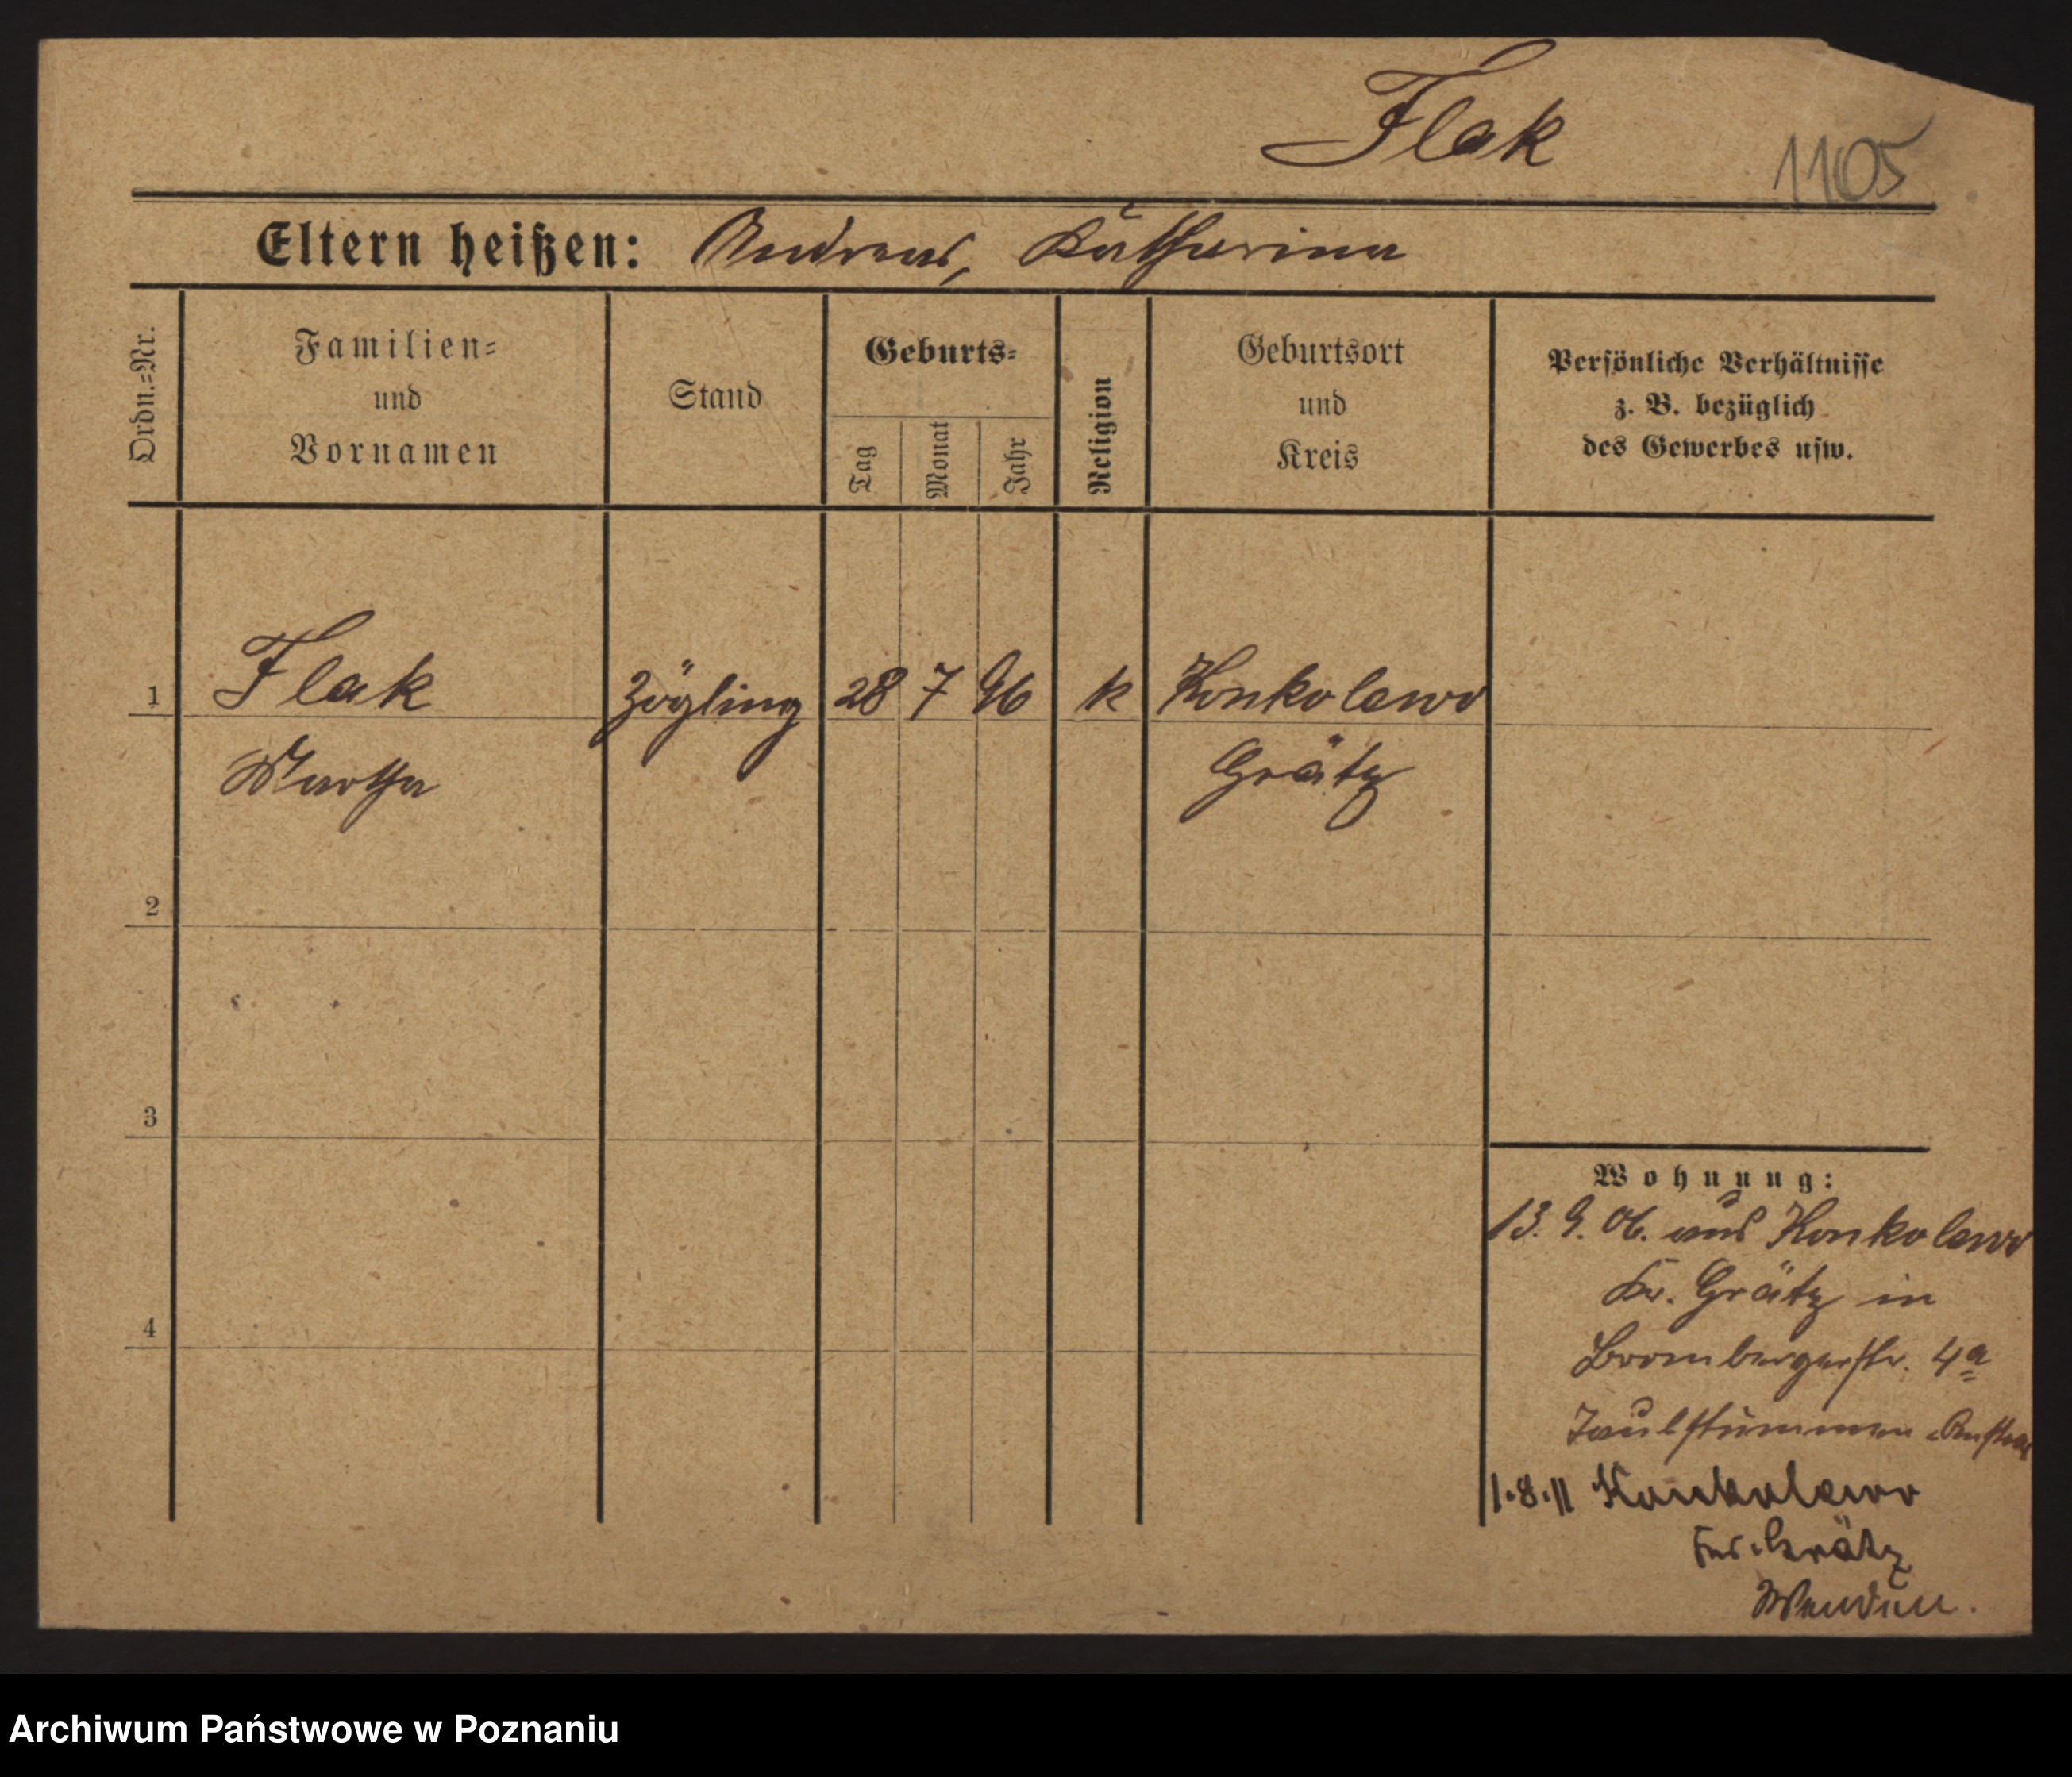 Flak
1105
Eltern heißen: Andreas, Katharina
Ordn.=Nr.
Familien=
und
Vornamen
Stand
Geburts=
Tag
Monat
Jahr
Religion
Geburtsort
und
Kreis
Persönliche Verhältnisse
z. B. bezüglich
des Gewerbes usw.
1 Flak Zögling 28 7 96 k Konkolewo
Martha Grätz
2
3
4
Wohnung:
13. 9. 06. aus Konkolewo
Kr. Grätz in
Brombergerstr. 4a
Taubstummen-Anstalt
1.8.11 Konkolewo
Grätz
Archiwum Państwowe w Poznaniu